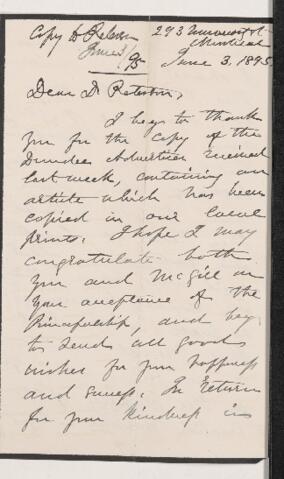 Copy to Peterson
June 3/95
293 University St.
Montreal
June 3. 1895.
Dear Dr Peterson,
I beg to thank
you for the copy of the
Dundee Advertiser received
last week, containing an
article which has been
copied in our local
prints. I hope I may
congratulate both
you and McGill on
your acceptance of the
Principalship, and beg
to send all good
wishes for your happiness
and success. In return
for your kindness in